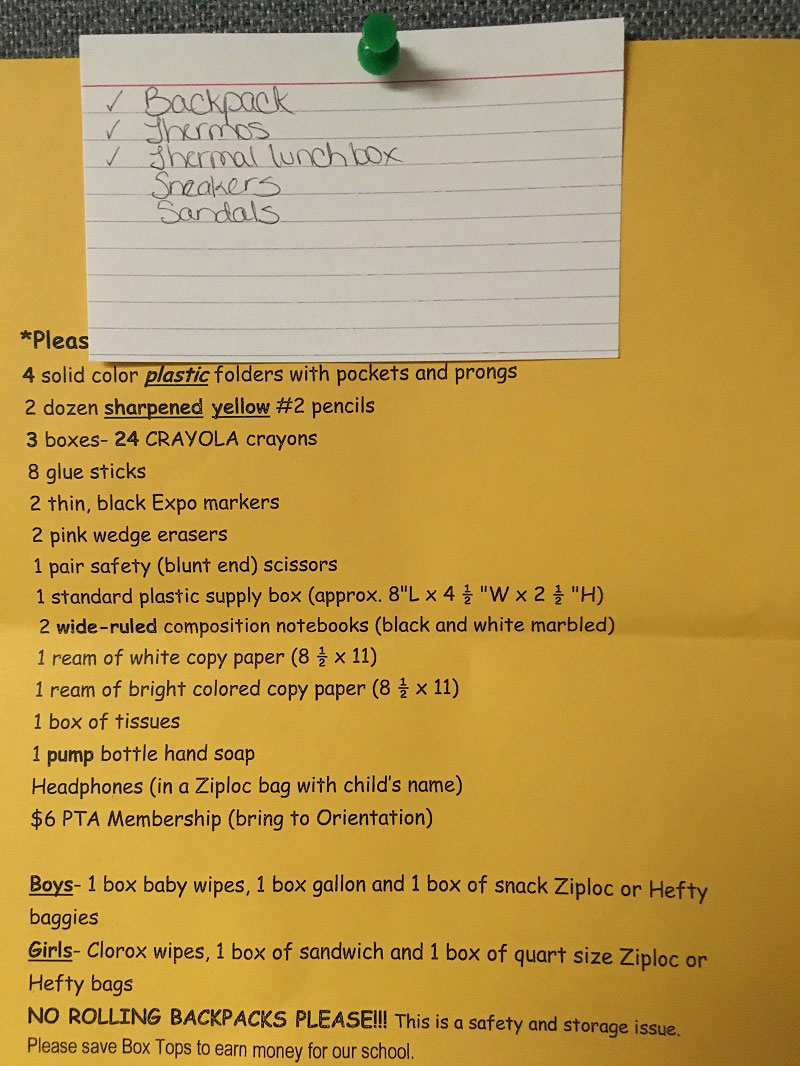 ✓ Backpack
✓ Thermos
✓ Thermal lunchbox
Sneakers
Sandals
*Pleas
4 solid color plastic folders with pockets and prongs
2 dozen sharpened yellow #2 pencils
3 boxes- 24 CRAYOLA crayons
8 glue sticks
2 thin, black Expo markers
2 pink wedge erasers
1 pair safety (blunt end) scissors
1 standard plastic supply box (approx. 8"L x 4 ½ "W x 2 ½ "H)
2 wide-ruled composition notebooks (black and white marbled)
1 ream of white copy paper (8 ½ x 11)
1 ream of bright colored copy paper (8 ½ x 11)
1 box of tissues
1 pump bottle hand soap
Headphones (in a Ziploc bag with child's name)
$6 PTA Membership (bring to Orientation)
Boys- 1 box baby wipes, 1 box gallon and 1 box of snack Ziploc or Hefty
baggies
Girls- Clorox wipes, 1 box of sandwich and 1 box of quart size Ziploc or
Hefty bags
NO ROLLING BACKPACKS PLEASE!!! This is a safety and storage issue.
Please save Box Tops to earn money for our school.